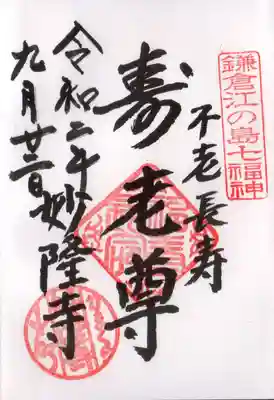 鎌倉江の島七福神
不老長寿
寿老尊
令和二年妙隆寺
九月廿二日